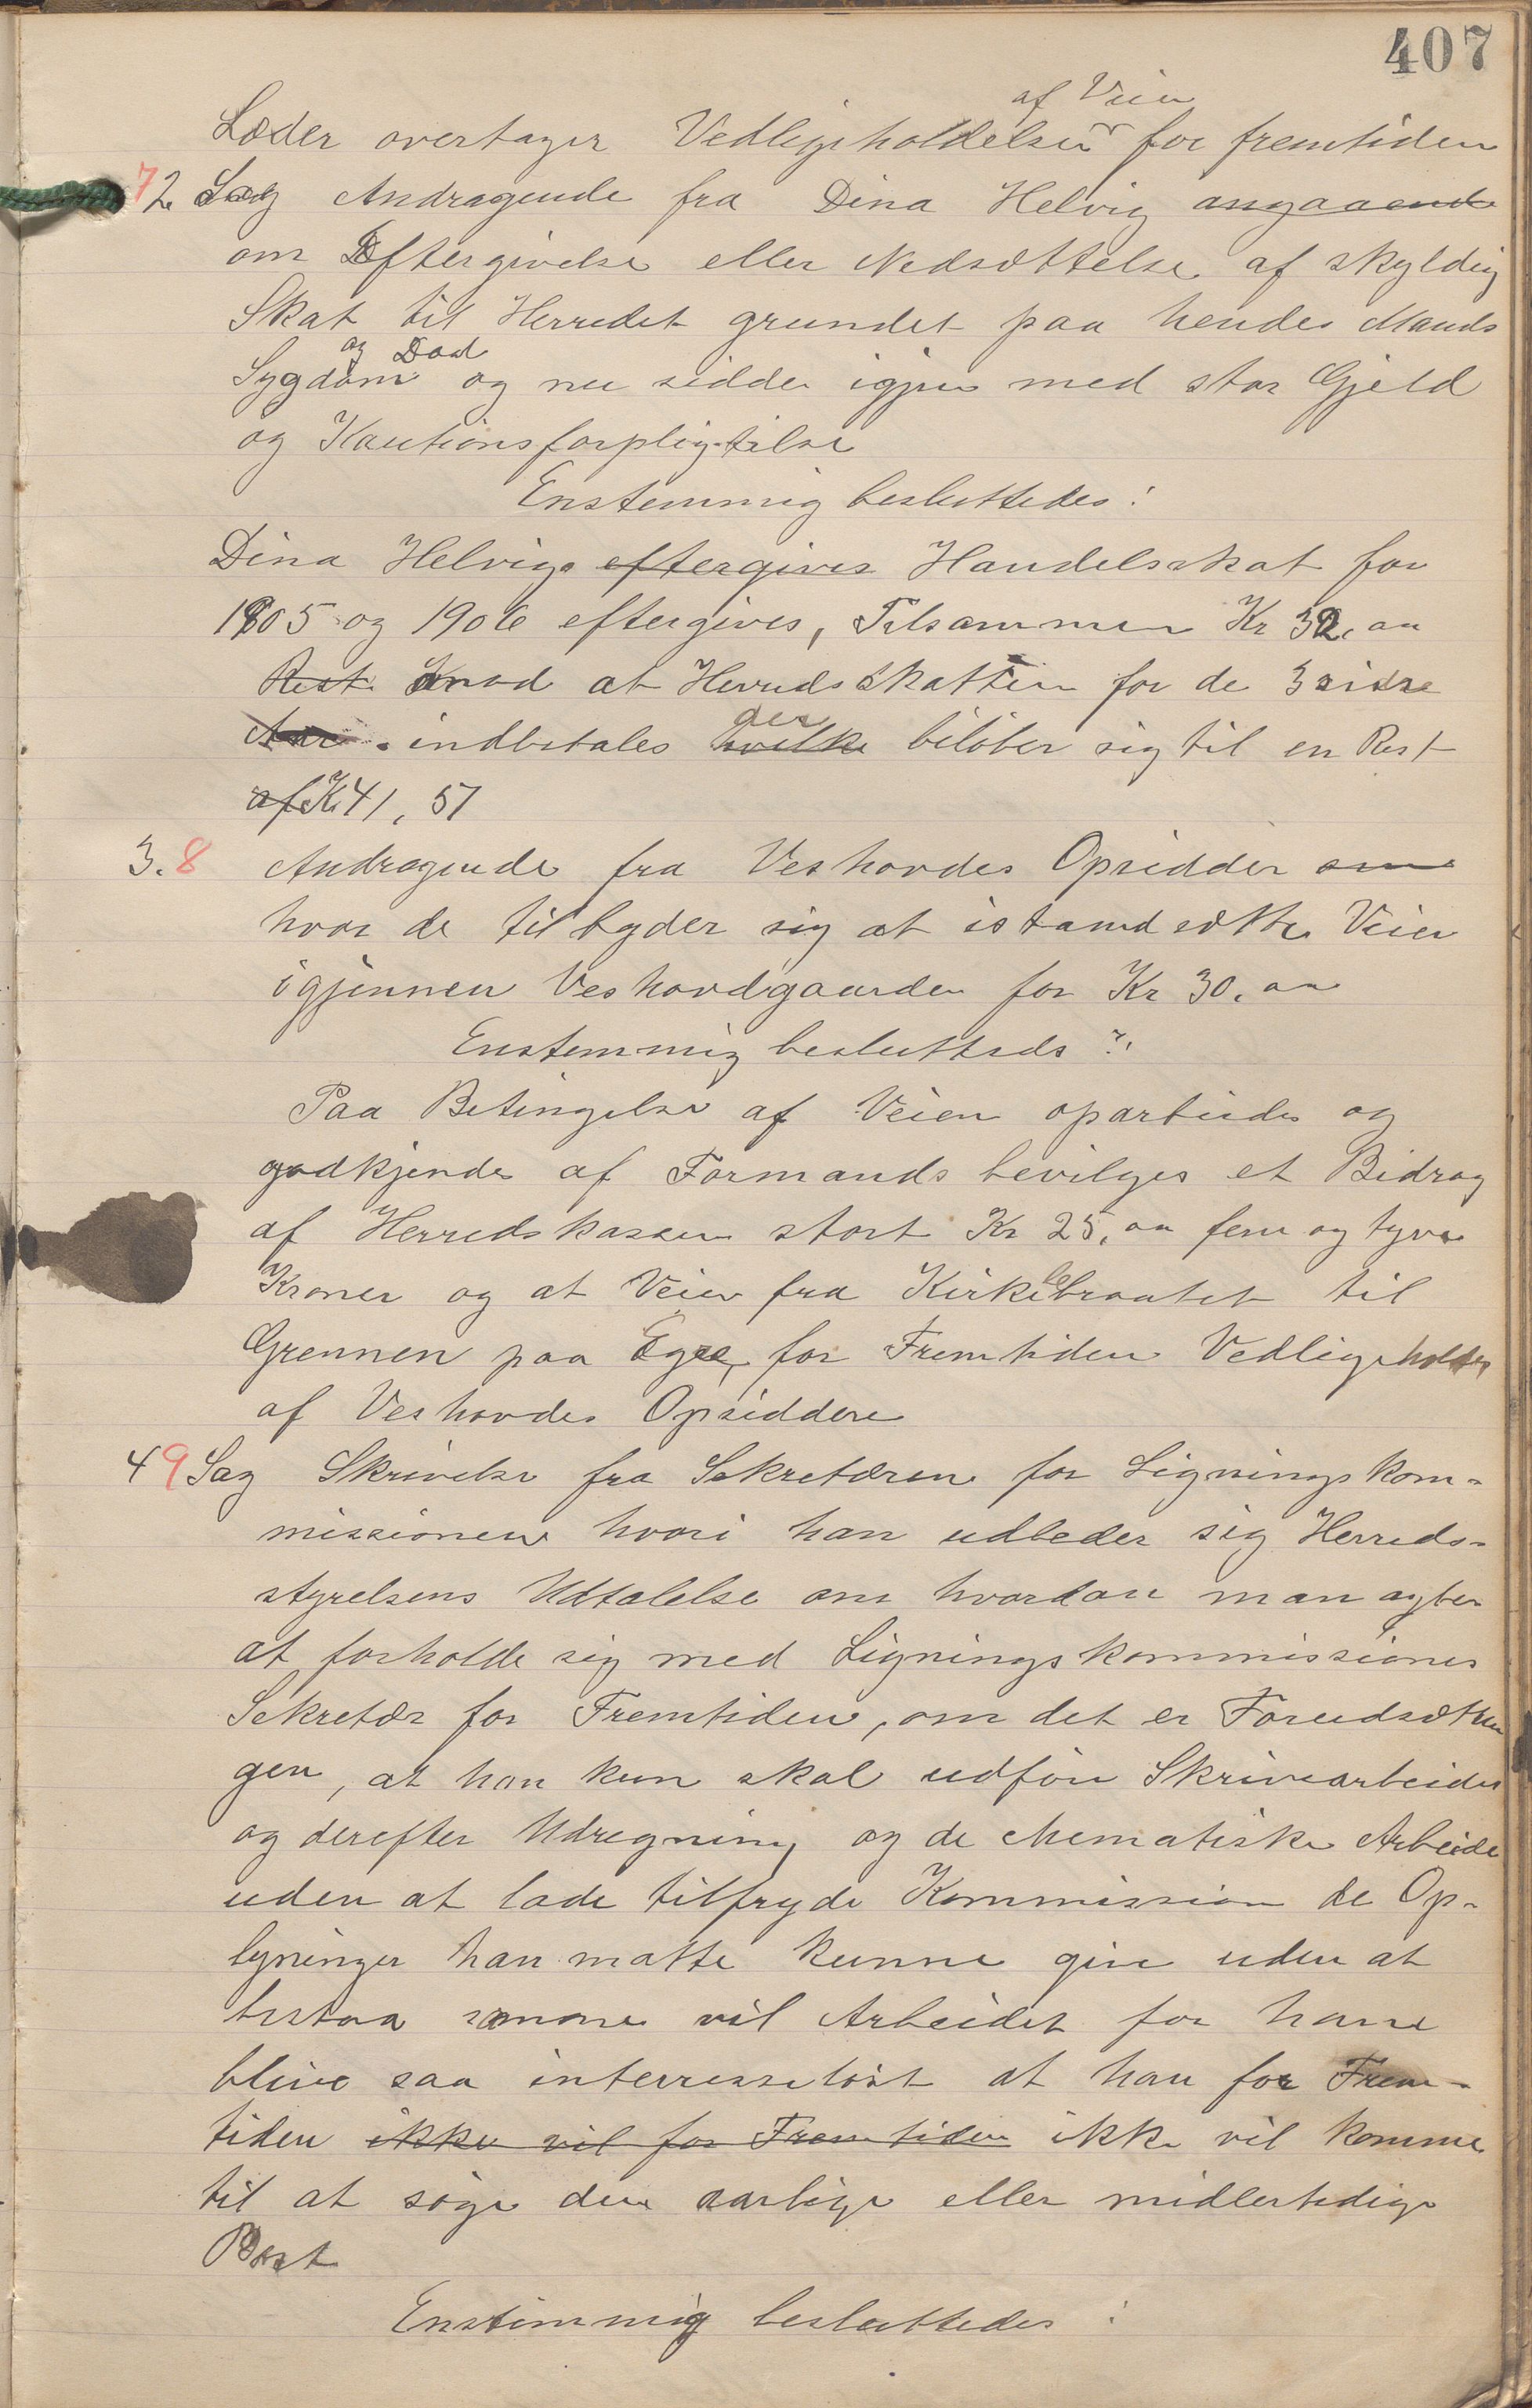 407
af Veien
Løder overtager Vedligeholdelsen for fremtiden
72. Sag Andragende fra Dina Helvig angaaende
om Eftergivelse eller Nedsættelse af skyldig
Skat til Herredet grundet paa hendes Mands
og Død
Sygdom og nu sidder igjen med stor Gjeld
og Kautionsforpligtelse
Enstemmig besluttedes:
Dina Helvigs eftergives Handelsskat for
1905 og 1906 eftergives, Tilsammen Kr 32,00
Rest mod at Herredsskatten for de 3 sidste
Aar indbetales hvilke beløber sig til en Rest
der
af Kr 41,51
3. 8 Andragende fra Veshovdes Opsidder som
hvor de tilbyder sig at istandsætte Veien
igjennem Veshovdgaarden for Kr 30,00
Enstemmig beslutteds:
Paa Betingelse af Veien oparbeides og
godkjendes af Formands bevilges et Bidrag
af Herredskassen stort Kr 25,00 fem og tyve
Kroner og at Veien fra Kirkebraatet til
Grennen paa for Fremtiden Vedligeholdes
af Veshovdes Opsiddere
4 9 Sag Skrivelse fra Sekretæren for Ligningskom-
missionen hvori han udbeder sig Herreds-
styrelsens Udtalelse om hvordan man agter
at forholde sig med Ligningskommissiones
Sekretær for Fremtiden, om det er Forudsætnin
gen, at han kun skal udføre Skrivearbeider
og derefter Udregning og de Mematiske Arbeide
uden at lade tilfryde Kommission de Op-
lysninger han matte kunne give uden at
bistaa samme vil Arbeidet for ham
blive saa interresseløst at han for Frem-
tiden ikke vil for Fremtiden ikke vil komme
til at søge den aarlige eller midlertidige
Post
Enstimmig besluttedes: